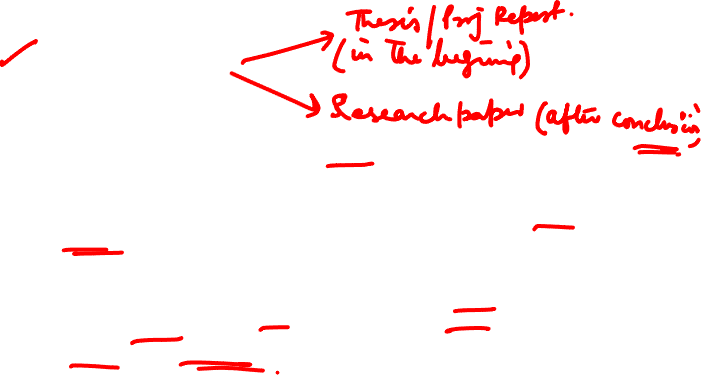 Thesis/Proj Report.
(in The begining)
Research paper (after conclusion)